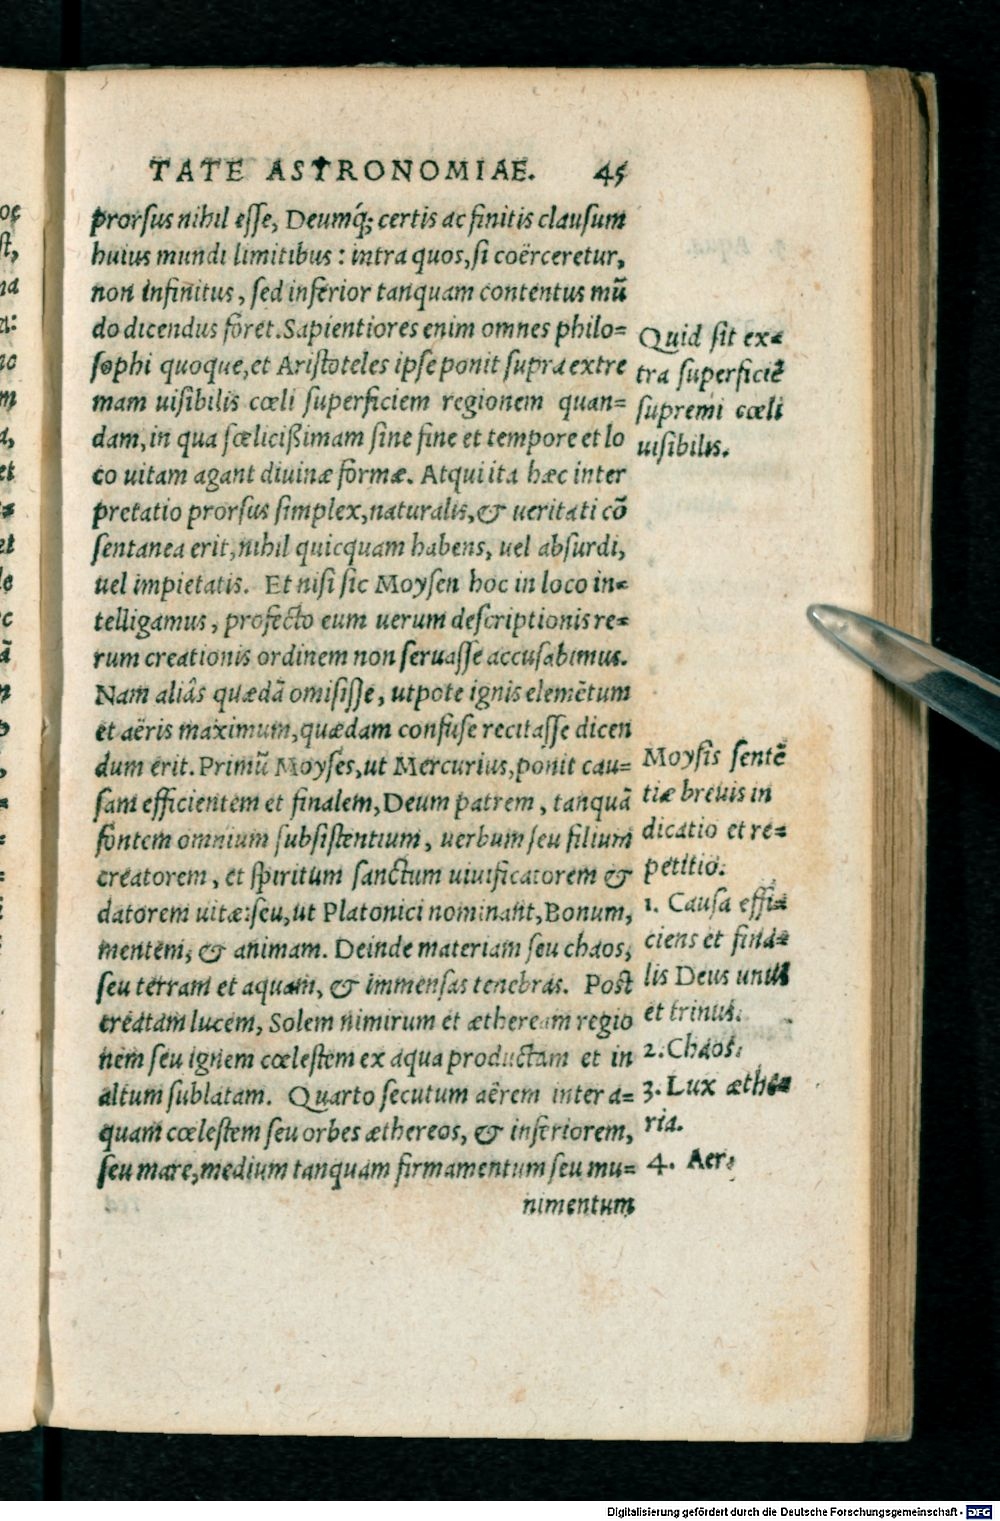 TATE ASTRONOMIAE. 45
prorsus nihil esse, Deumq́; certis ac finitis clausum
huius mundi limitibus: intra quos, si coërceretur,
non infinitus, sed inferior tanquam contentus mũ
do dicendus foret. Sapientiores enim omnes philo=
sophi quoque, et Aristoteles ipse ponit supra extre
mam uisibilis cœli superficiem regionem quan=
dam, in qua fœlicißimam sine fine et tempore et lo
co uitam agant diuinæ formæ. Atqui ita hæc inter
pretatio prorsus simplex, naturalis, & ueritati cõ
sentanea erit, nihil quicquam habens, uel absurdi,
uel impietatis. Et nisi sic Moysen hoc in loco in=
telligamus, profecto eum uerum descriptionis re=
rum creationis ordinem non seruasse accusabimus.
Nam aliâs quædã omisisse, utpote ignis elemẽtum
et aëris maximum, quædam confuse recitasse dicen
dum erit. Primũ Moyses, ut Mercurius, ponit cau=
sam efficientem et finalem, Deum patrem, tanquã
fontem omnium subsistentium, uerbum seu filium
creatorem, et spiritum sanctum uiuificatorem &
datorem uitæ: seu, ut Platonici nominant, Bonum,
mentem, & animam. Deinde materiam seu chaos,
seu terram et aquam, & immensas tenebras. Post
creatam lucem, Solem nimirum et ætheream regio
nem seu ignem cœlestem ex aqua productam et in
altum sublatam. Quarto secutum aërem inter a=
quam cœlestem seu orbes æthereos, & inferiorem,
seu mare, medium tanquam firmamentum seu mu=
nimentum
Quid sit ex=
tra superficiẽ
supremi cœli
uisibilis.
Moysis sentẽ
tiæ breuis in
dicatio et re=
petitio.
1. Causa effi=
ciens et fina=
lis Deus unus
et trinus.
2. Chaos.
3. Lux æthe=
ria.
4. Aer.
Digitalisierung gefördert durch die Deutsche Forschungsgemeinschaft - DFG